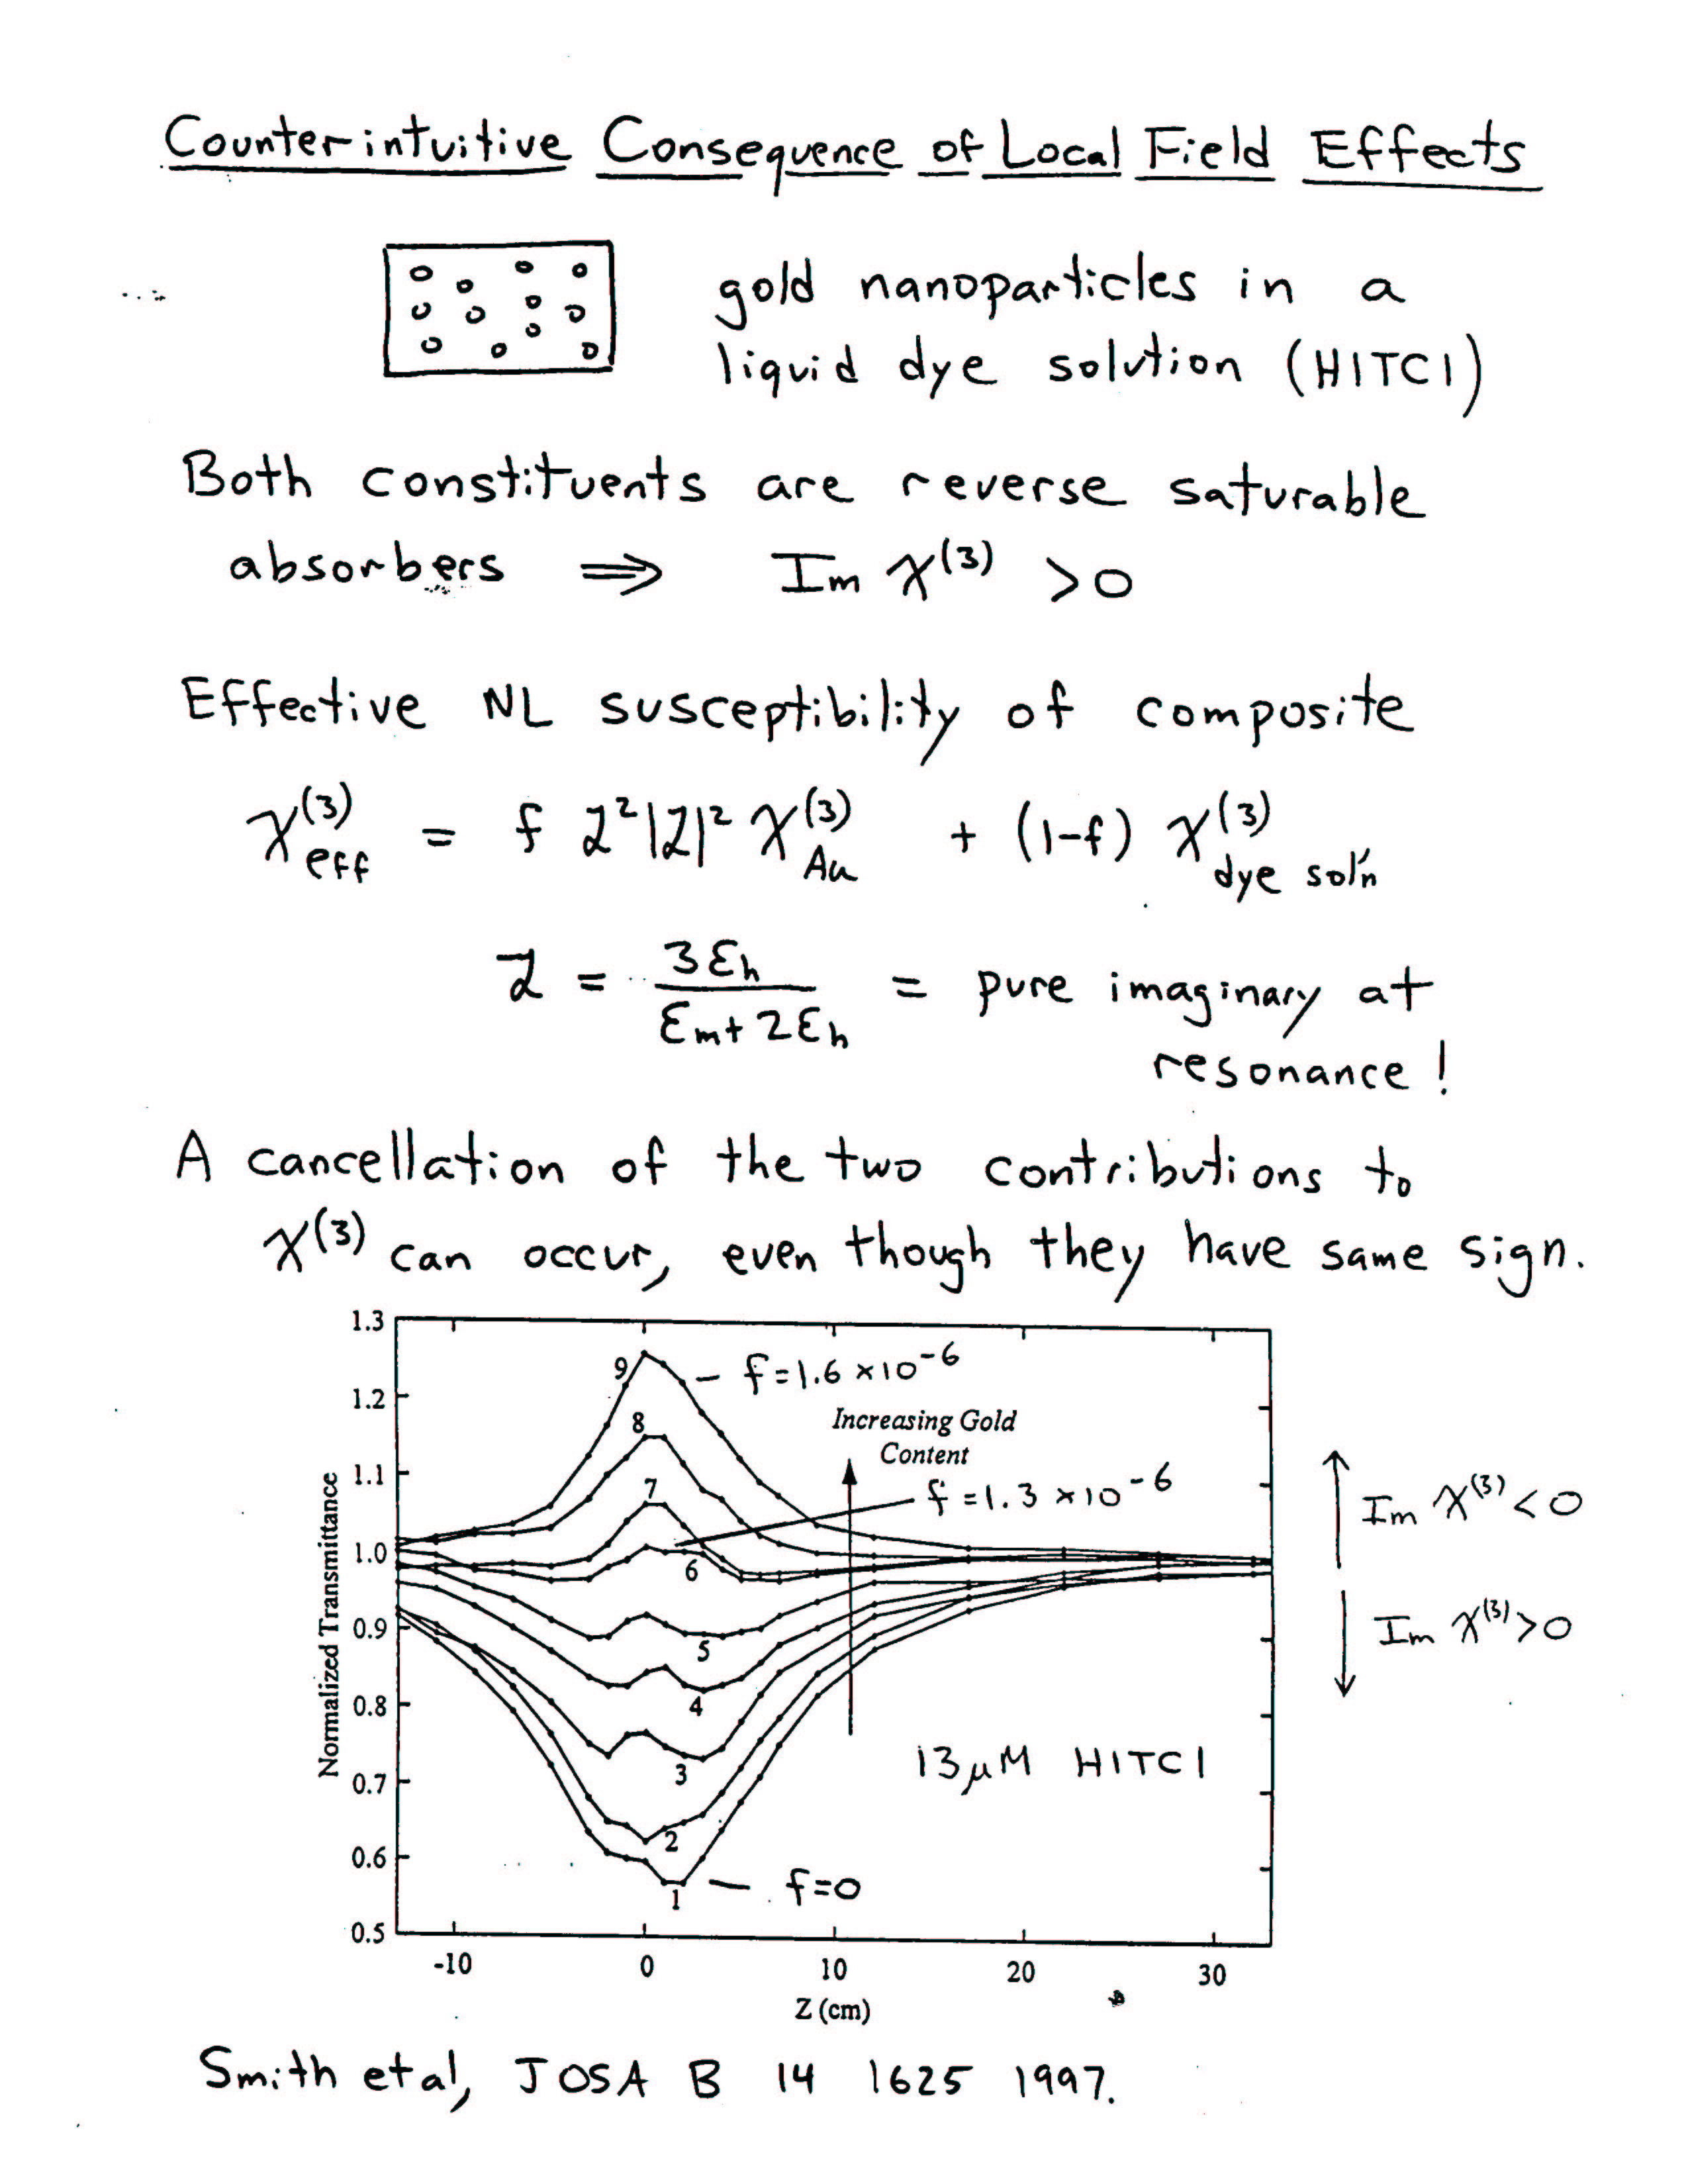 Counterintuitive Consequence of Local Field Effects
gold nanoparticles in a
liquid dye solution (HITCI)
Both constituents are reverse saturable
absorbers ⇒ Im χ⁽³⁾ >0
Effective NL susceptibility of composite
χ⁽³⁾eff = f ℒ²|ℒ|² χ⁽³⁾Au + (1-f) χ⁽³⁾dye sol'n
ℒ = 3εh / (εm+2εh) = pure imaginary at
resonance!
A cancellation of the two contributions to
χ⁽³⁾ can occur, even though they have same sign.
Normalized Transmittance
1.3
1.2
1.1
1.0
0.9
0.8
0.7
0.6
0.5
9
f=1.6 ×10⁻⁶
8
Increasing Gold
Content
7
f=1.3 ×10⁻⁶
6
5
4
3
2
1
f=0
13μM HITCI
Im χ⁽³⁾<0
Im χ⁽³⁾>0
-10 0 10 20 30
Z (cm)
Smith et al, JOSA B 14 1625 1997.